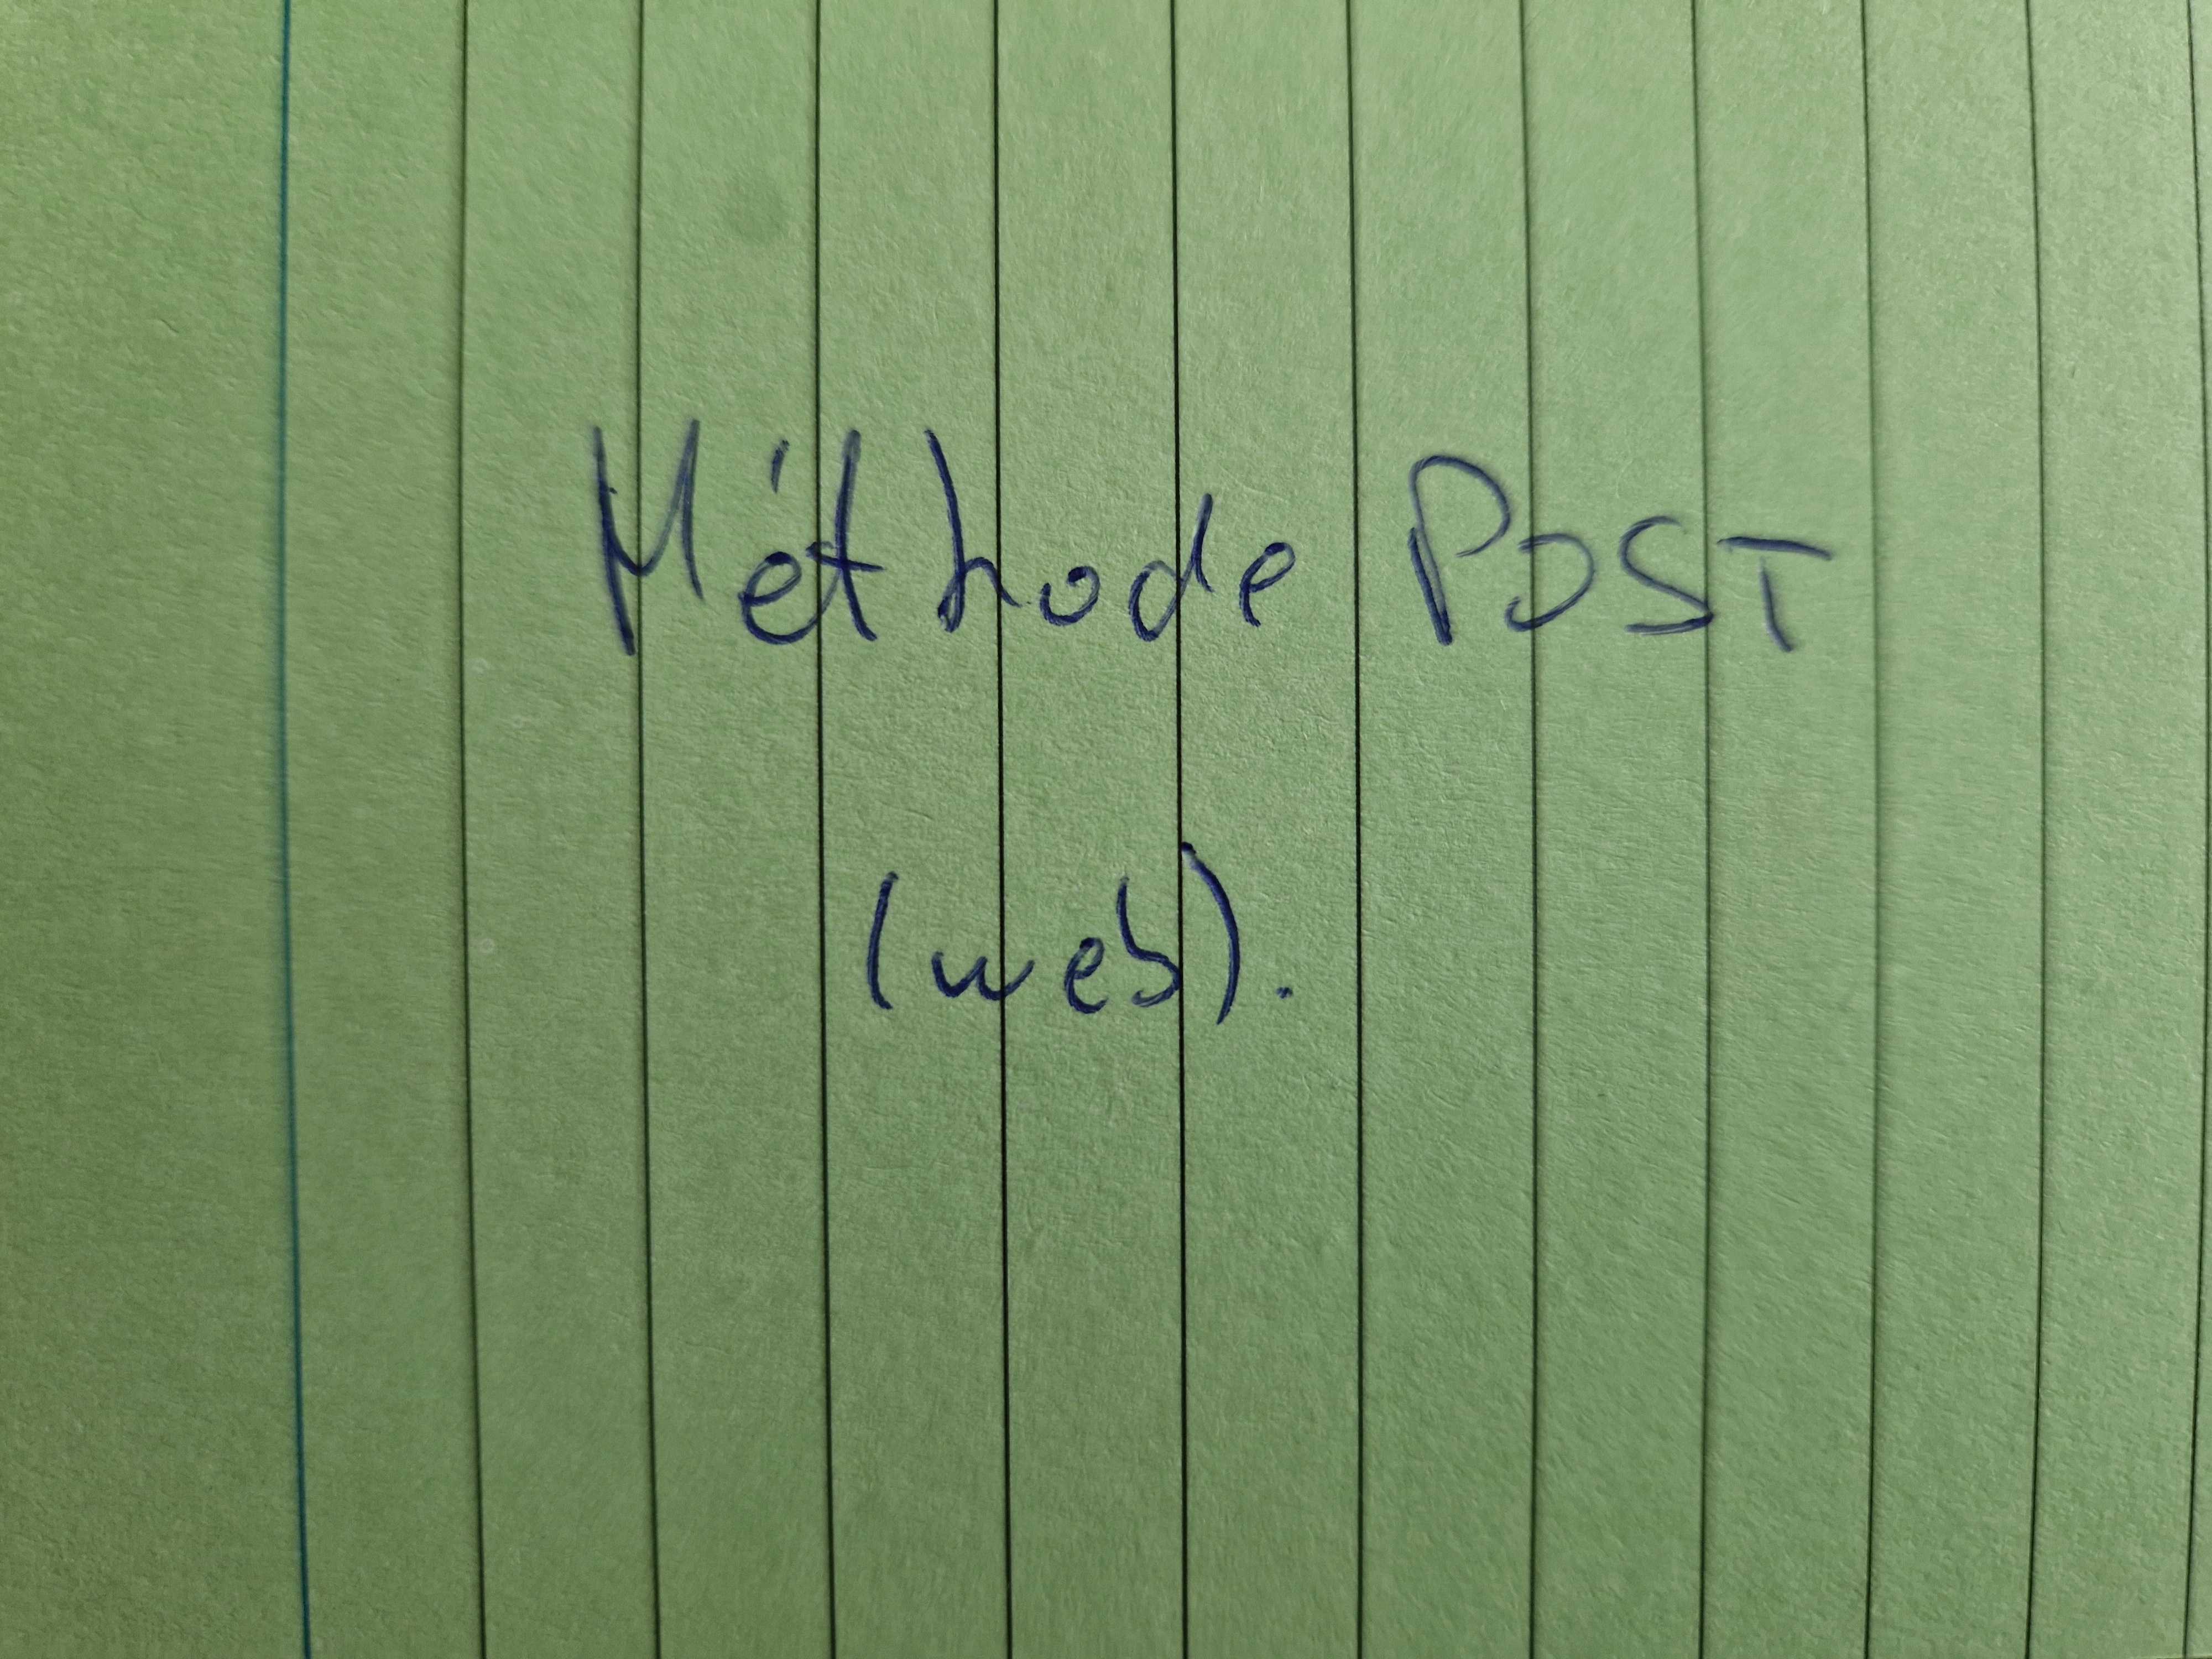 Méthode POST
(web).